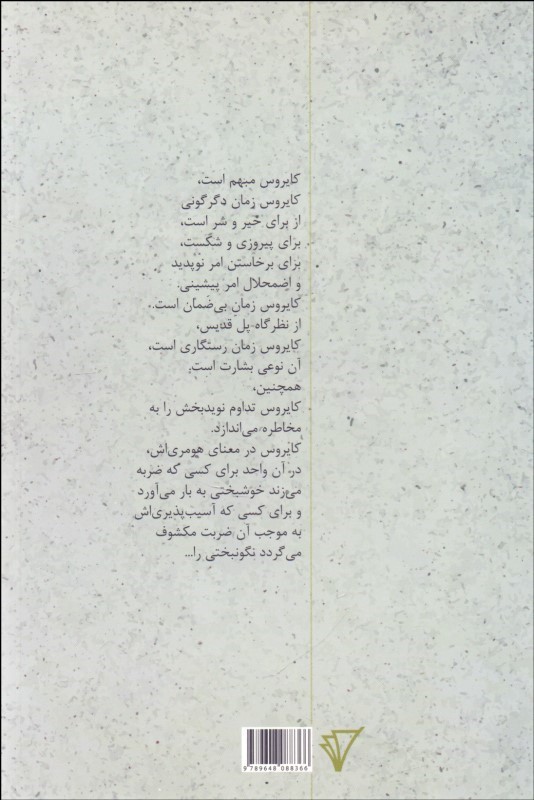 کایروس مبهم است،
کایروس زمان دگرگونی
از برای خیر و شر است،
برای پیروزی و شکست،
برای برخاستن امر نوپدید
و اضمحلال امر پیشینی.
کایروس زمانِ بی‌ضمان است.
از نظرگاه پل قدیس،
کایروس زمان رستگاری است،
آن نوعی بشارت است.
همچنین،
کایروس تداوم نویدبخش را به
مخاطره می‌اندازد.
کایروس در معنای هومری‌اش،
در آن واحد برای کسی که ضربه
می‌زند خوشبختی به بار می‌آورد
و برای کسی که آسیب‌پذیری‌اش
به موجب آن ضربت مکشوف
می‌گردد نگونبختی را...
9 789648 088366